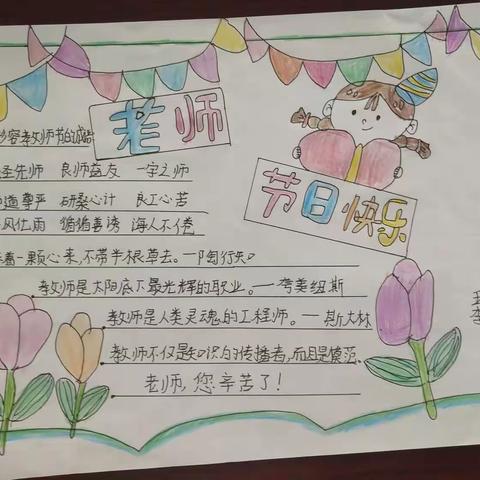 老师
节日快乐
形容教师节的成语
至圣先师 良师益友 一字之师
道尊严 研桑心计 良工心苦
风化雨 循循善诱 诲人不倦
着一颗心来,不带半根草去。一陶行知
教师是太阳底下最光辉的职业。一夸美纽斯
教师是人类灵魂的工程师。一斯大林
教师不仅是知识的传播者,而且是模范。
老师,您辛苦了!